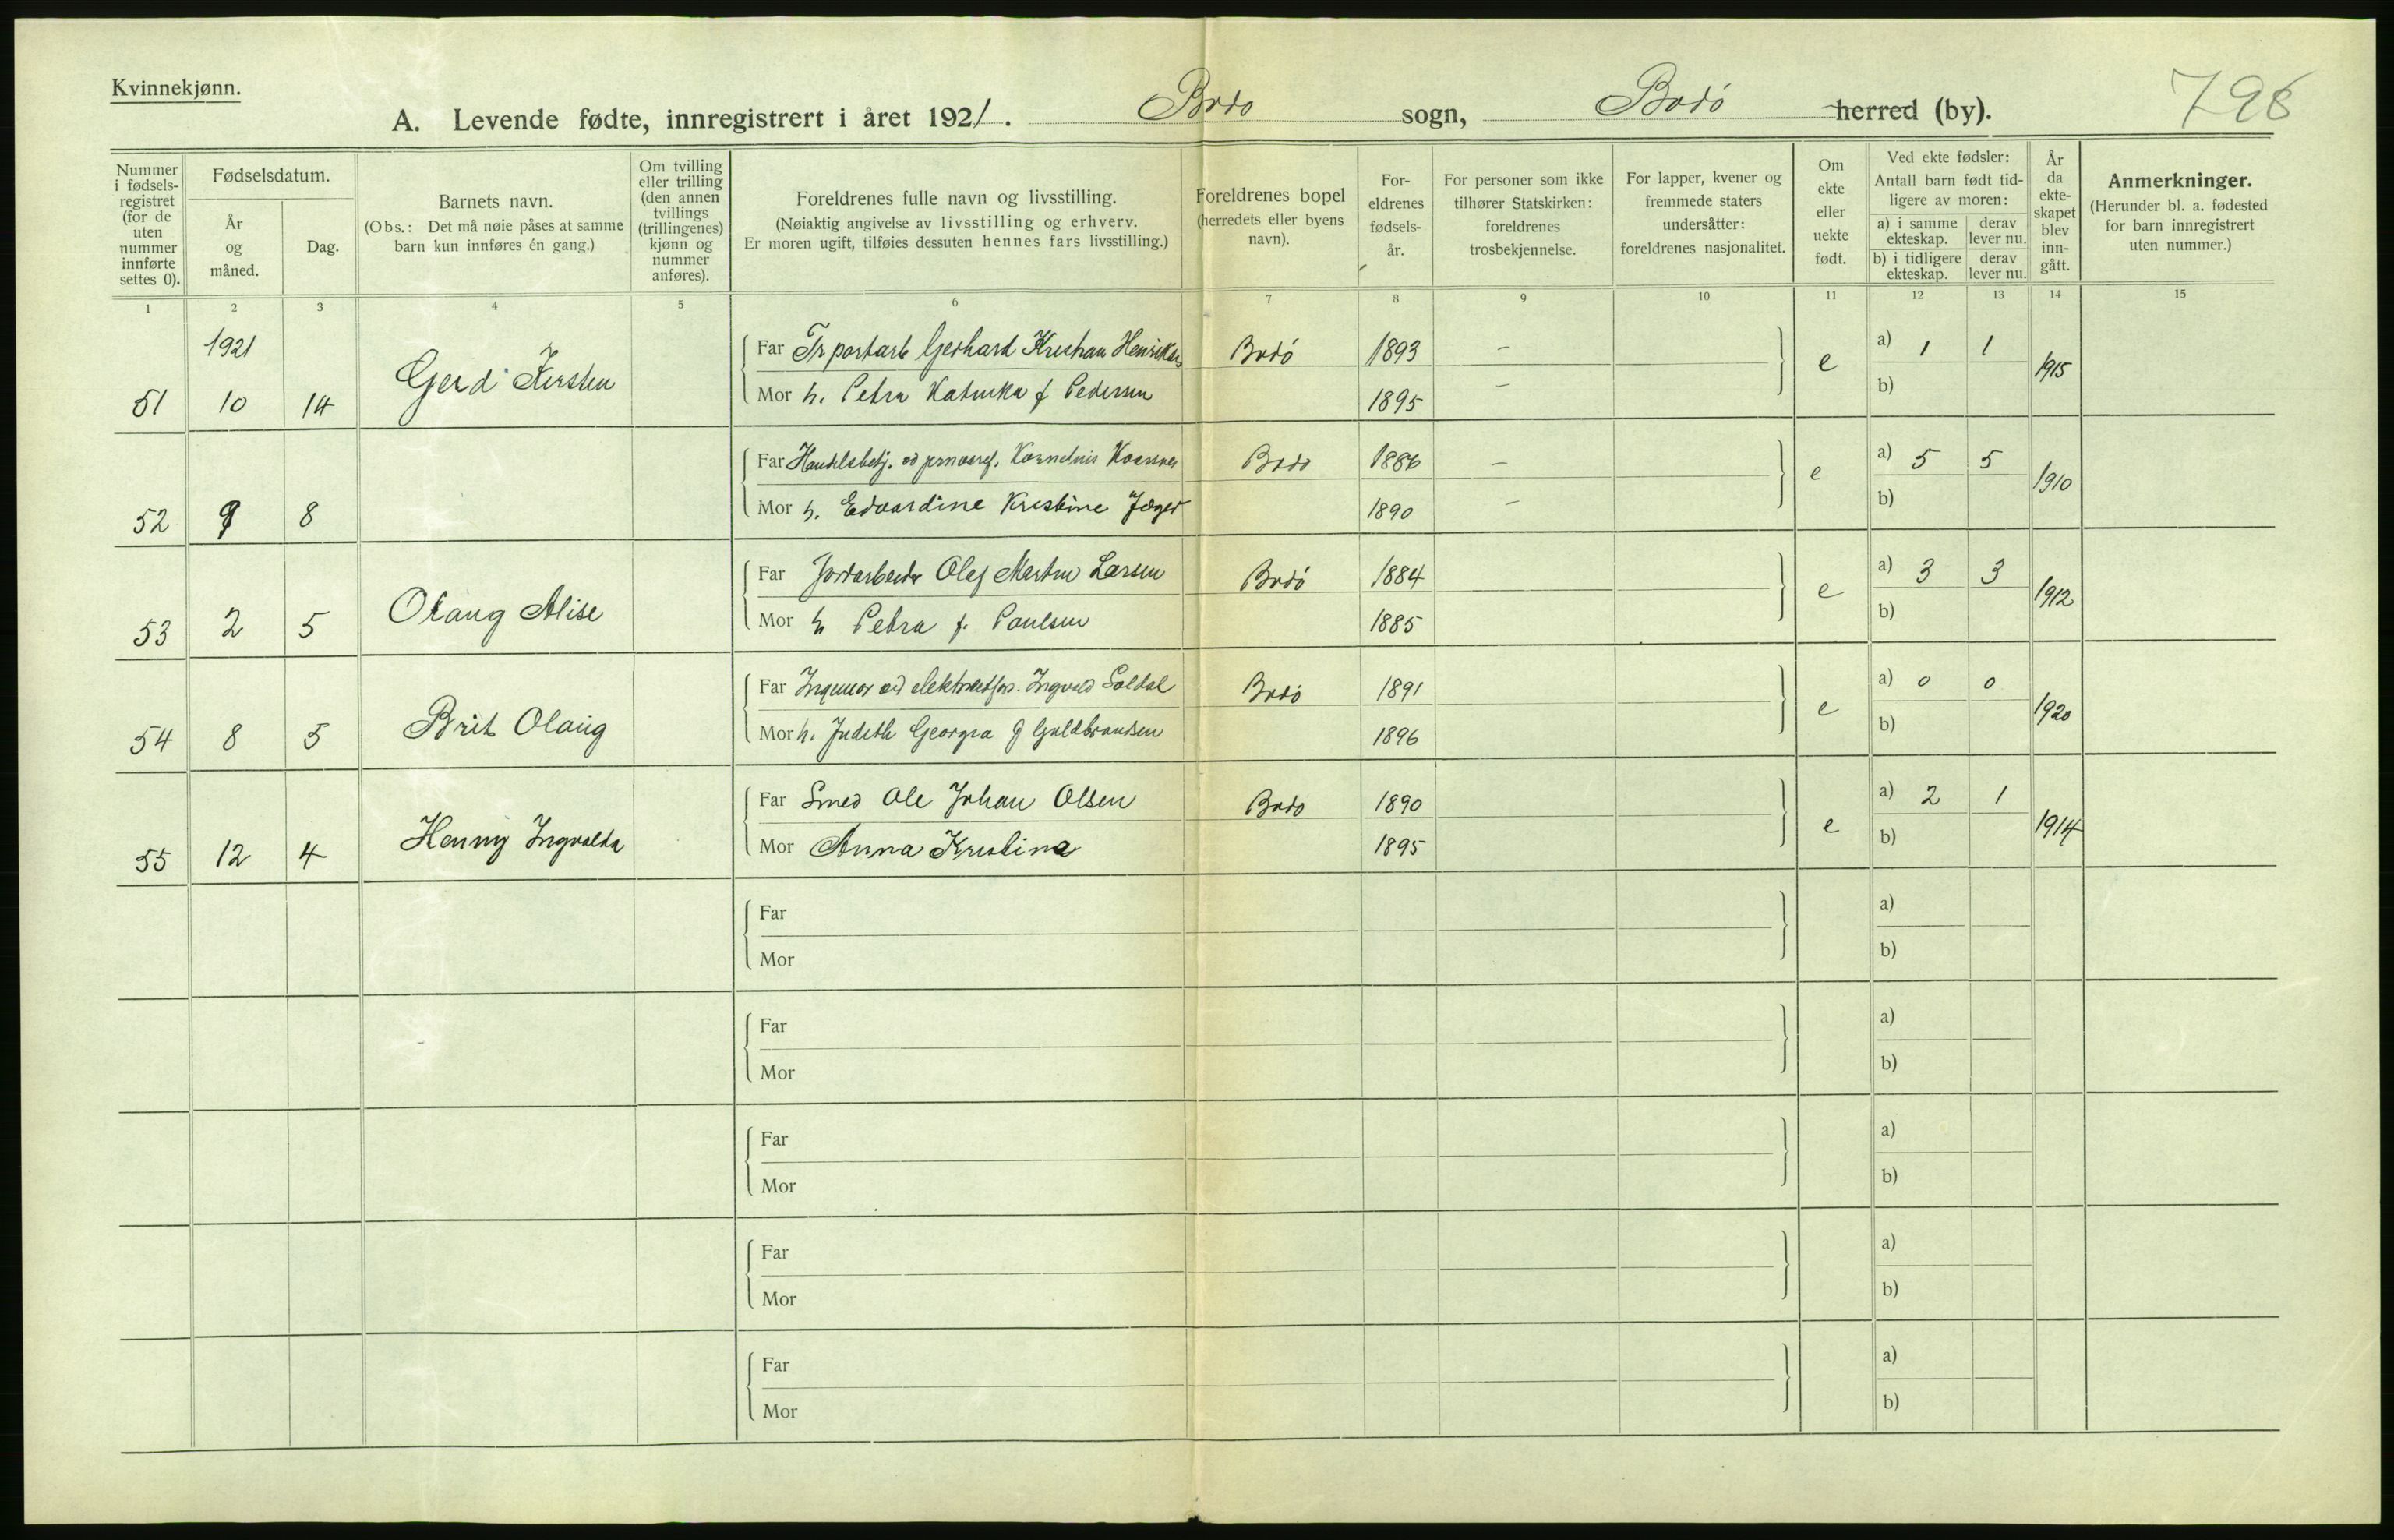 Kvinnekjønn.
A. Levende fødte, innregistrert i året 1921. Bodø sogn, Bodø herred (by). 798
Nummer i fødselsregistret (for de uten nummer innførte settes 0).
Fødselsdatum.
År og måned.
Dag.
Barnets navn.
(Obs.: Det må nøie påses at samme barn kun innføres én gang.)
Om tvilling eller trilling (den annen tvillings (trillingenes) kjønn og nummer anføres).
Foreldrenes fulle navn og livsstilling.
(Nøiaktig angivelse av livsstilling og erhverv.
Er moren ugift, tilføies dessuten hennes fars livsstilling.)
Foreldrenes bopel (herredets eller byens navn).
Foreldrenes fødselsår.
For personer som ikke tilhører Statskirken: foreldrenes trosbekjennelse.
For lapper, kvener og fremmede staters undersåtter: foreldrenes nasjonalitet.
Om ekte eller uekte født.
Ved ekte fødsler:
Antall barn født tidligere av moren:
a) i samme ekteskap. derav lever nu.
b) i tidligere ekteskap. derav lever nu.
År da ekteskapet blev inngått.
Anmerkninger.
(Herunder bl. a. fødested for barn innregistrert uten nummer.)
1 2 3 4 5 6 7 8 9 10 11 12 13 14 15
1921
51 10 14 Gerd Kirsten
Far Trportarb Gerhard Kristian Henriksen Bodø 1893 – e a) 1 1 1915
Mor h. Petra Katinka f Pedersen 1895 – b)
52 9 8
Far Handelsbetj. Kornelius Bodø 1886 – e a) 5 5 1910
Mor h. Edvardine Kristine Jæger 1890 – b)
53 2 5 Olaug Alise
Far Jordarbeider Olaf Martin Larsen Bodø 1884 e a) 3 3 1912
Mor h Petra f. Paulsen 1885 b)
54 8 5 Brit Olaug
Far Ingeniør ved Ingvald Soldal Bodø 1891 e a) 0 0 1920
Mor h. Judith Georgea f Guldbrandsen 1896 b)
55 12 4 Henny Ingvalda
Far Smed Ole Johan Olsen Bodø 1890 e a) 2 1 1914
Mor Anna Kristine 1895 b)
Far a)
Mor b)
Far a)
Mor b)
Far a)
Mor b)
Far a)
Mor b)
Far a)
Mor b)